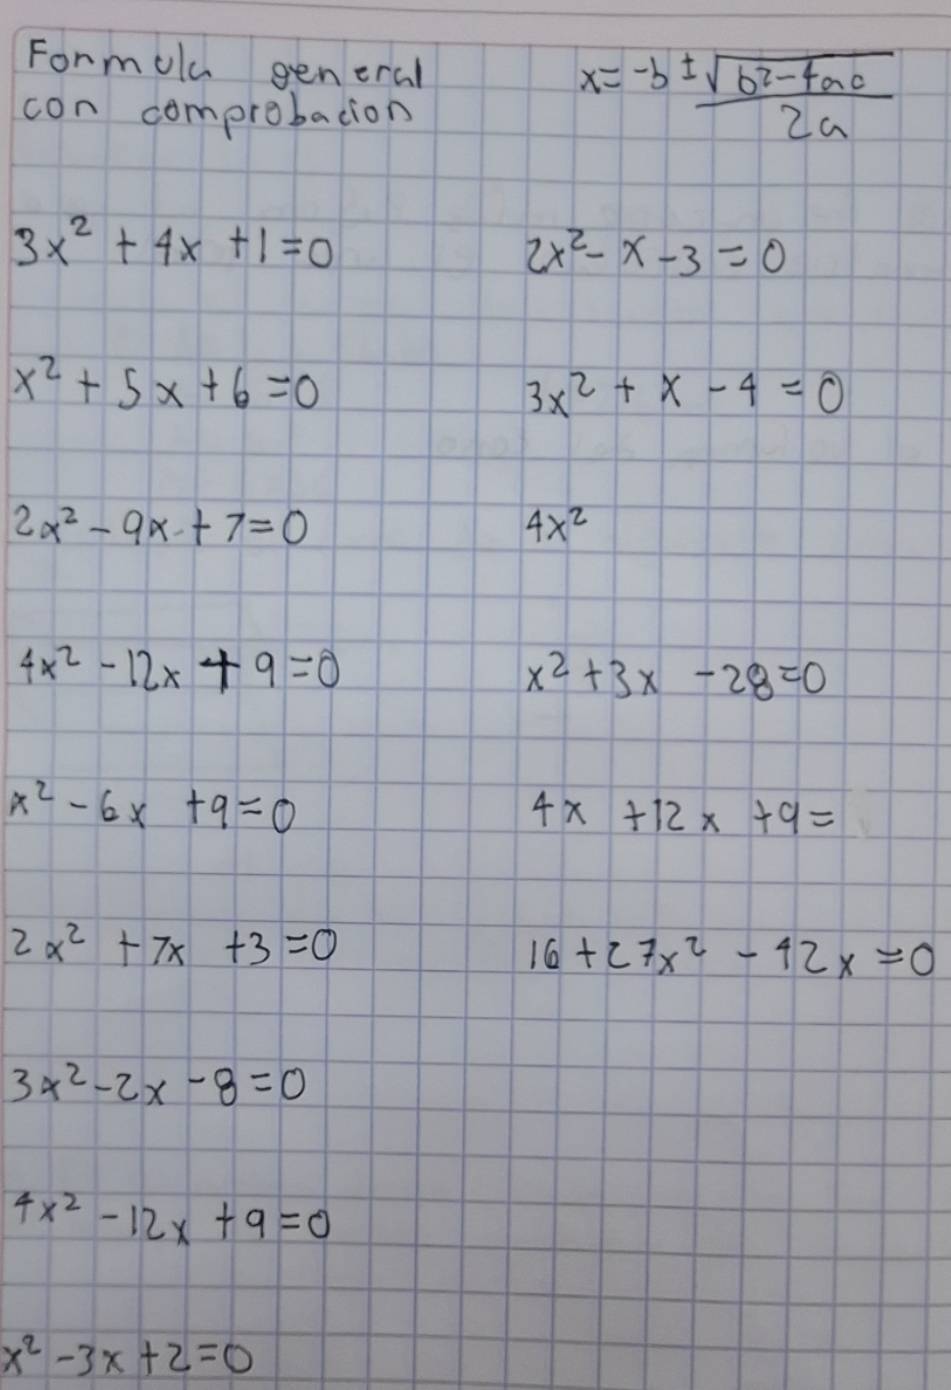 Formula general
con comprobacion
x = -b ± √b² - 4ac
2a
3x² + 4x + 1 = 0
2x² - x - 3 = 0
x² + 5x + 6 = 0
3x² + x - 4 = 0
2x² - 9x + 7 = 0
4x²
4x² - 12x + 9 = 0
x² + 3x - 28 = 0
x² - 6x + 9 = 0
4x + 12x + 9 =
2x² + 7x + 3 = 0
16 + 27x² - 42x = 0
3x² - 2x - 8 = 0
4x² - 12x + 9 = 0
x² - 3x + 2 = 0